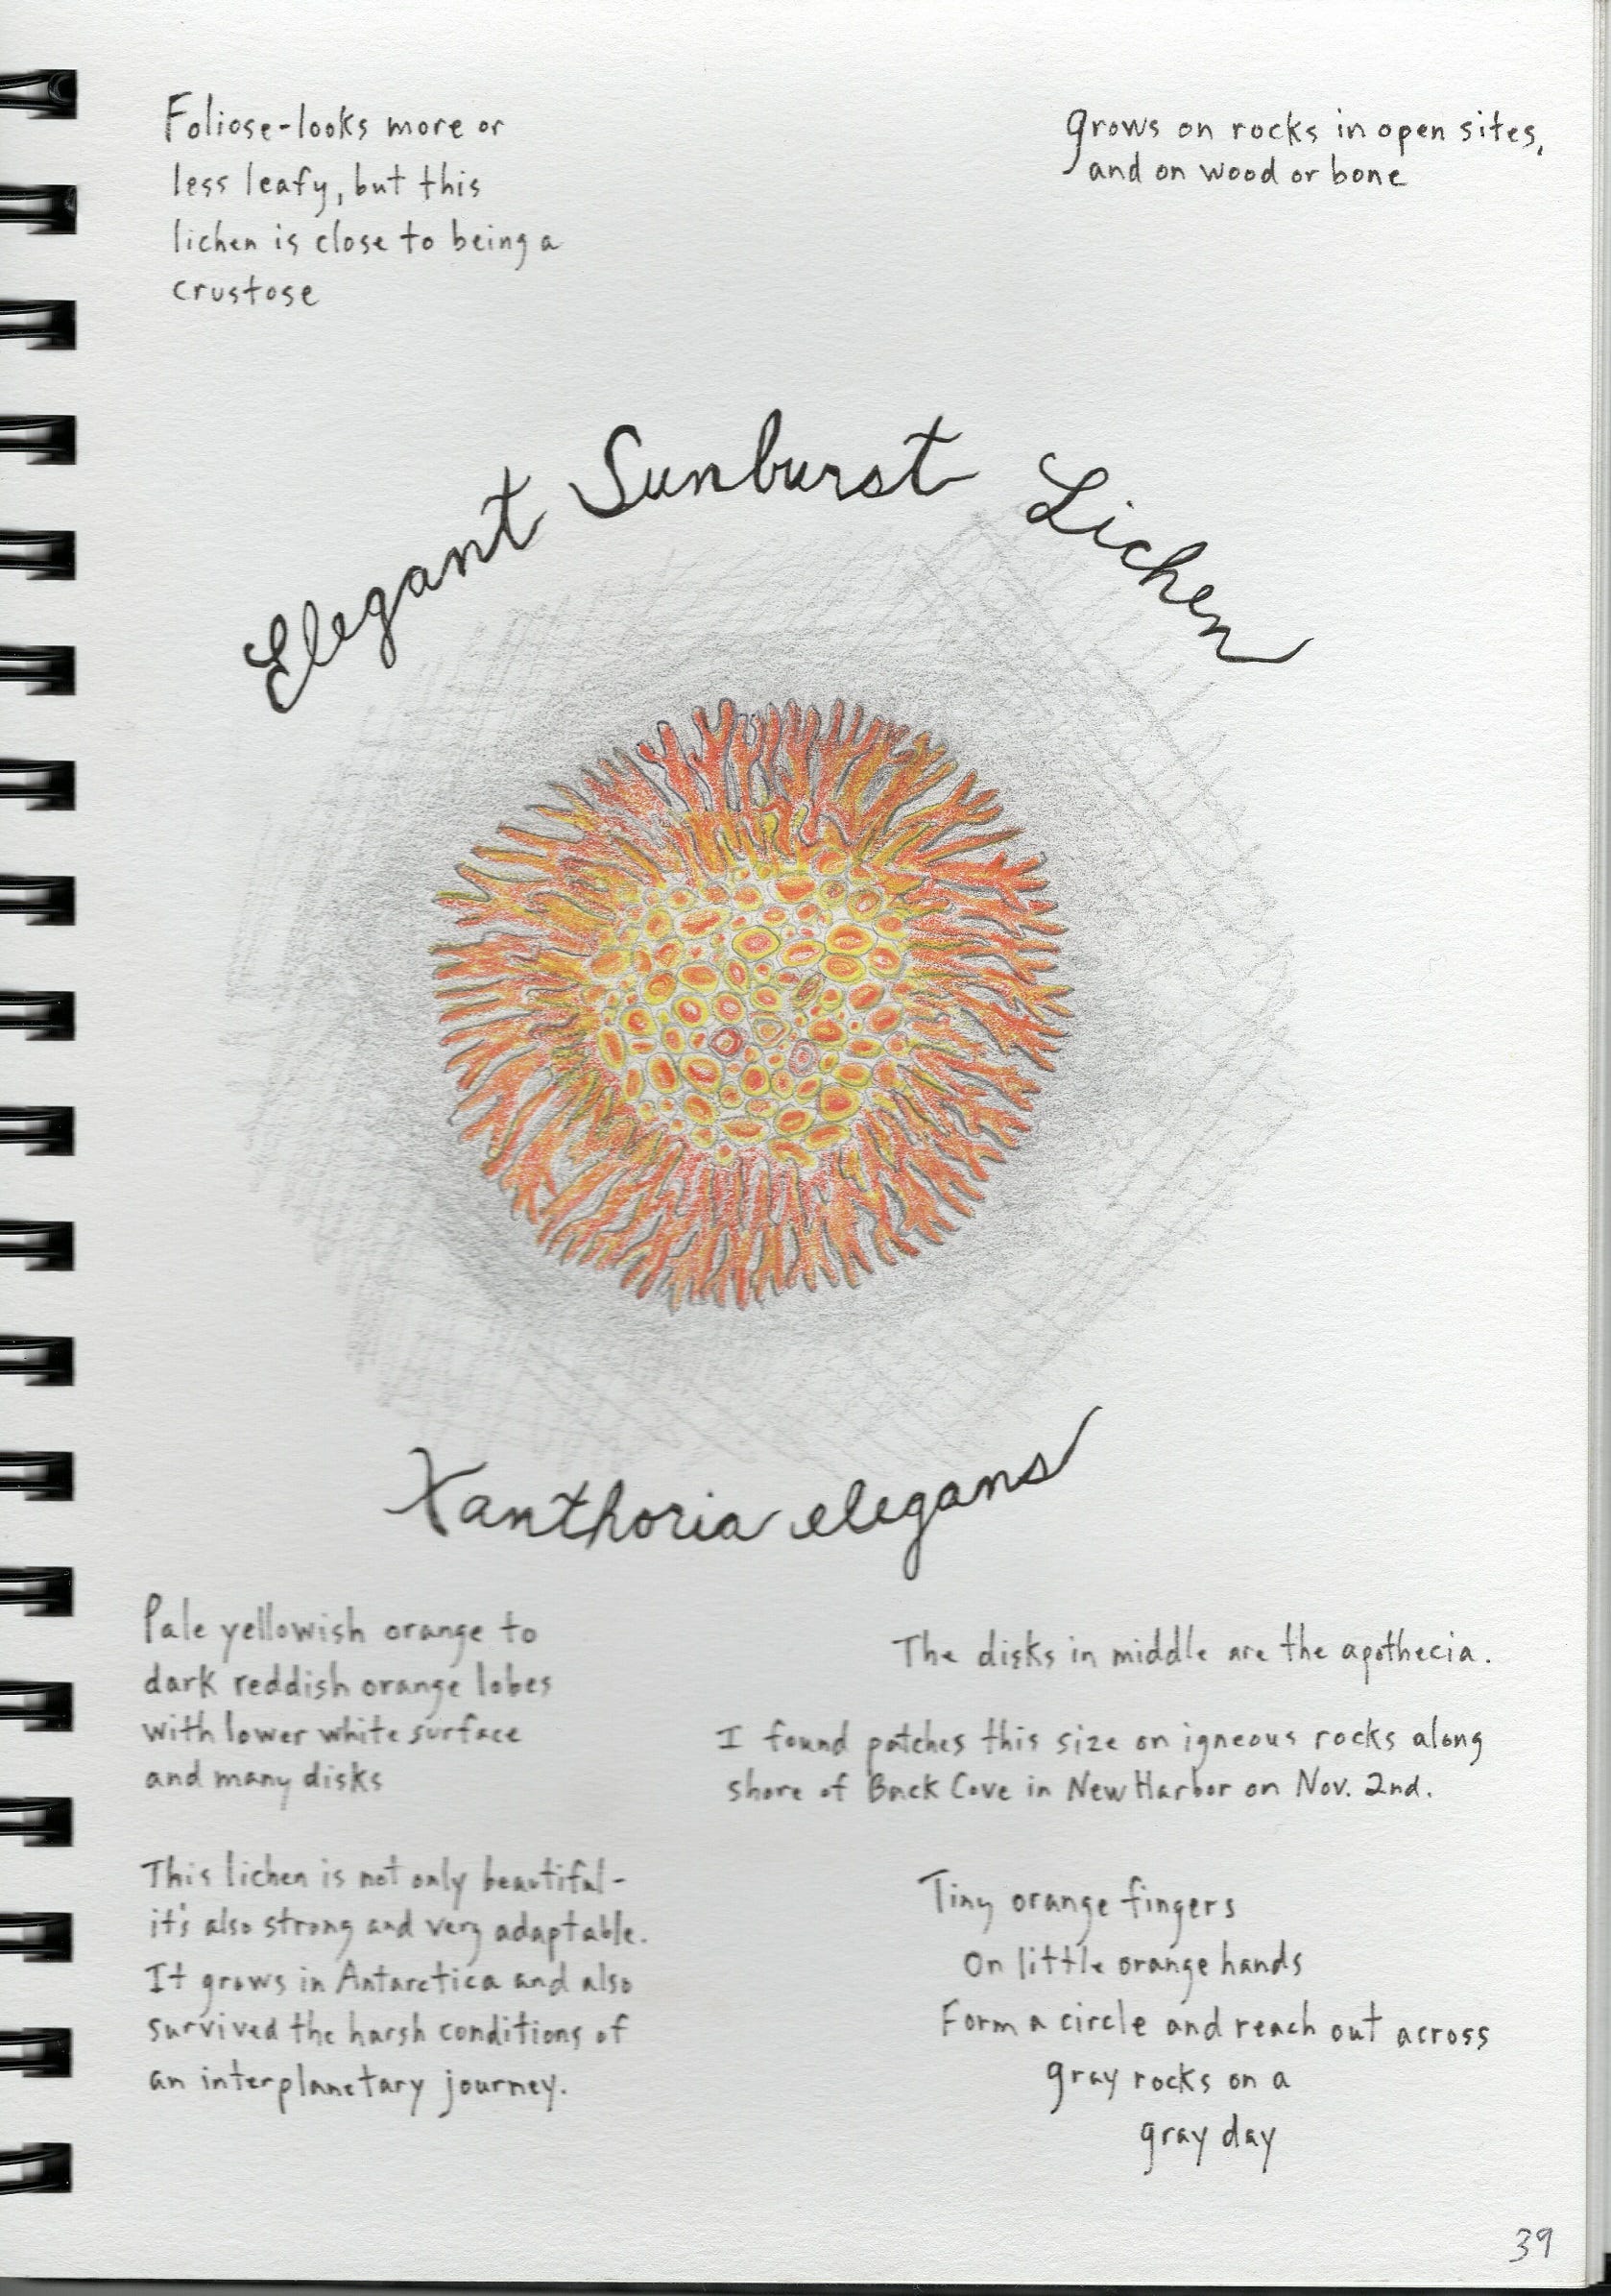 Foliose-looks more or
less leafy, but this
lichen is close to being a
crustose
grows on rocks in open sites,
and on wood or bone
Elegant Sunburst Lichen
Xanthoria elegans
Pale yellowish orange to
dark reddish orange lobes
with lower white surface
and many disks
The disks in middle are the apothecia.
I found patches this size on igneous rocks along
shore of Back Cove in New Harbor on Nov. 2nd.
This lichen is not only beautiful-
it's also strong and very adaptable.
It grows in Antarctica and also
survived the harsh conditions of
an interplanetary journey.
Tiny orange fingers
On little orange hands
Form a circle and reach out across
gray rocks on a
gray day
39